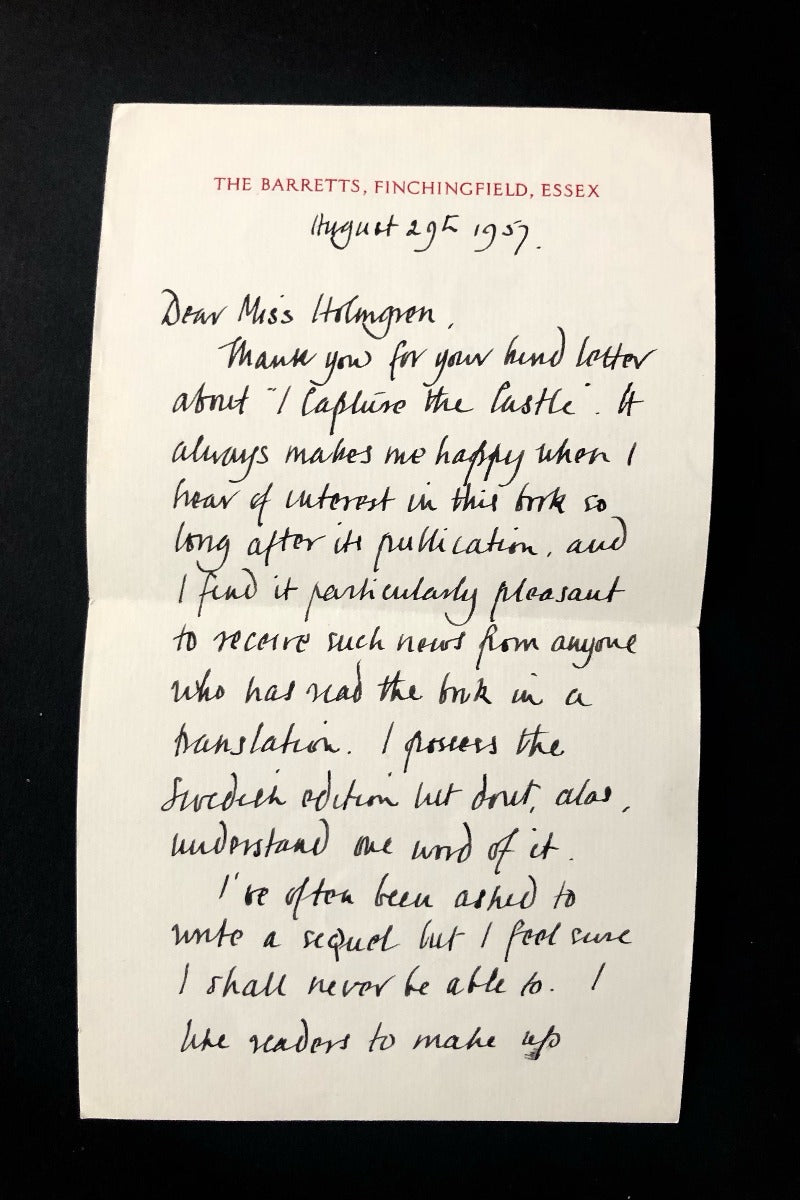 THE BARRETTS, FINCHINGFIELD, ESSEX
August 29th 1957.
Dear Miss Holmgren,
Thank you for your kind letter
about "I Capture the Castle". It
always makes me happy when I
hear of interest in this book so
long after its publication, and
I find it particularly pleasant
to receive such news from anyone
who has read the book in a
translation. I possess the
Swedish edition but don't, alas,
understand one word of it.
I've often been asked to
write a sequel but I feel sure
I shall never be able to. I
like readers to make up